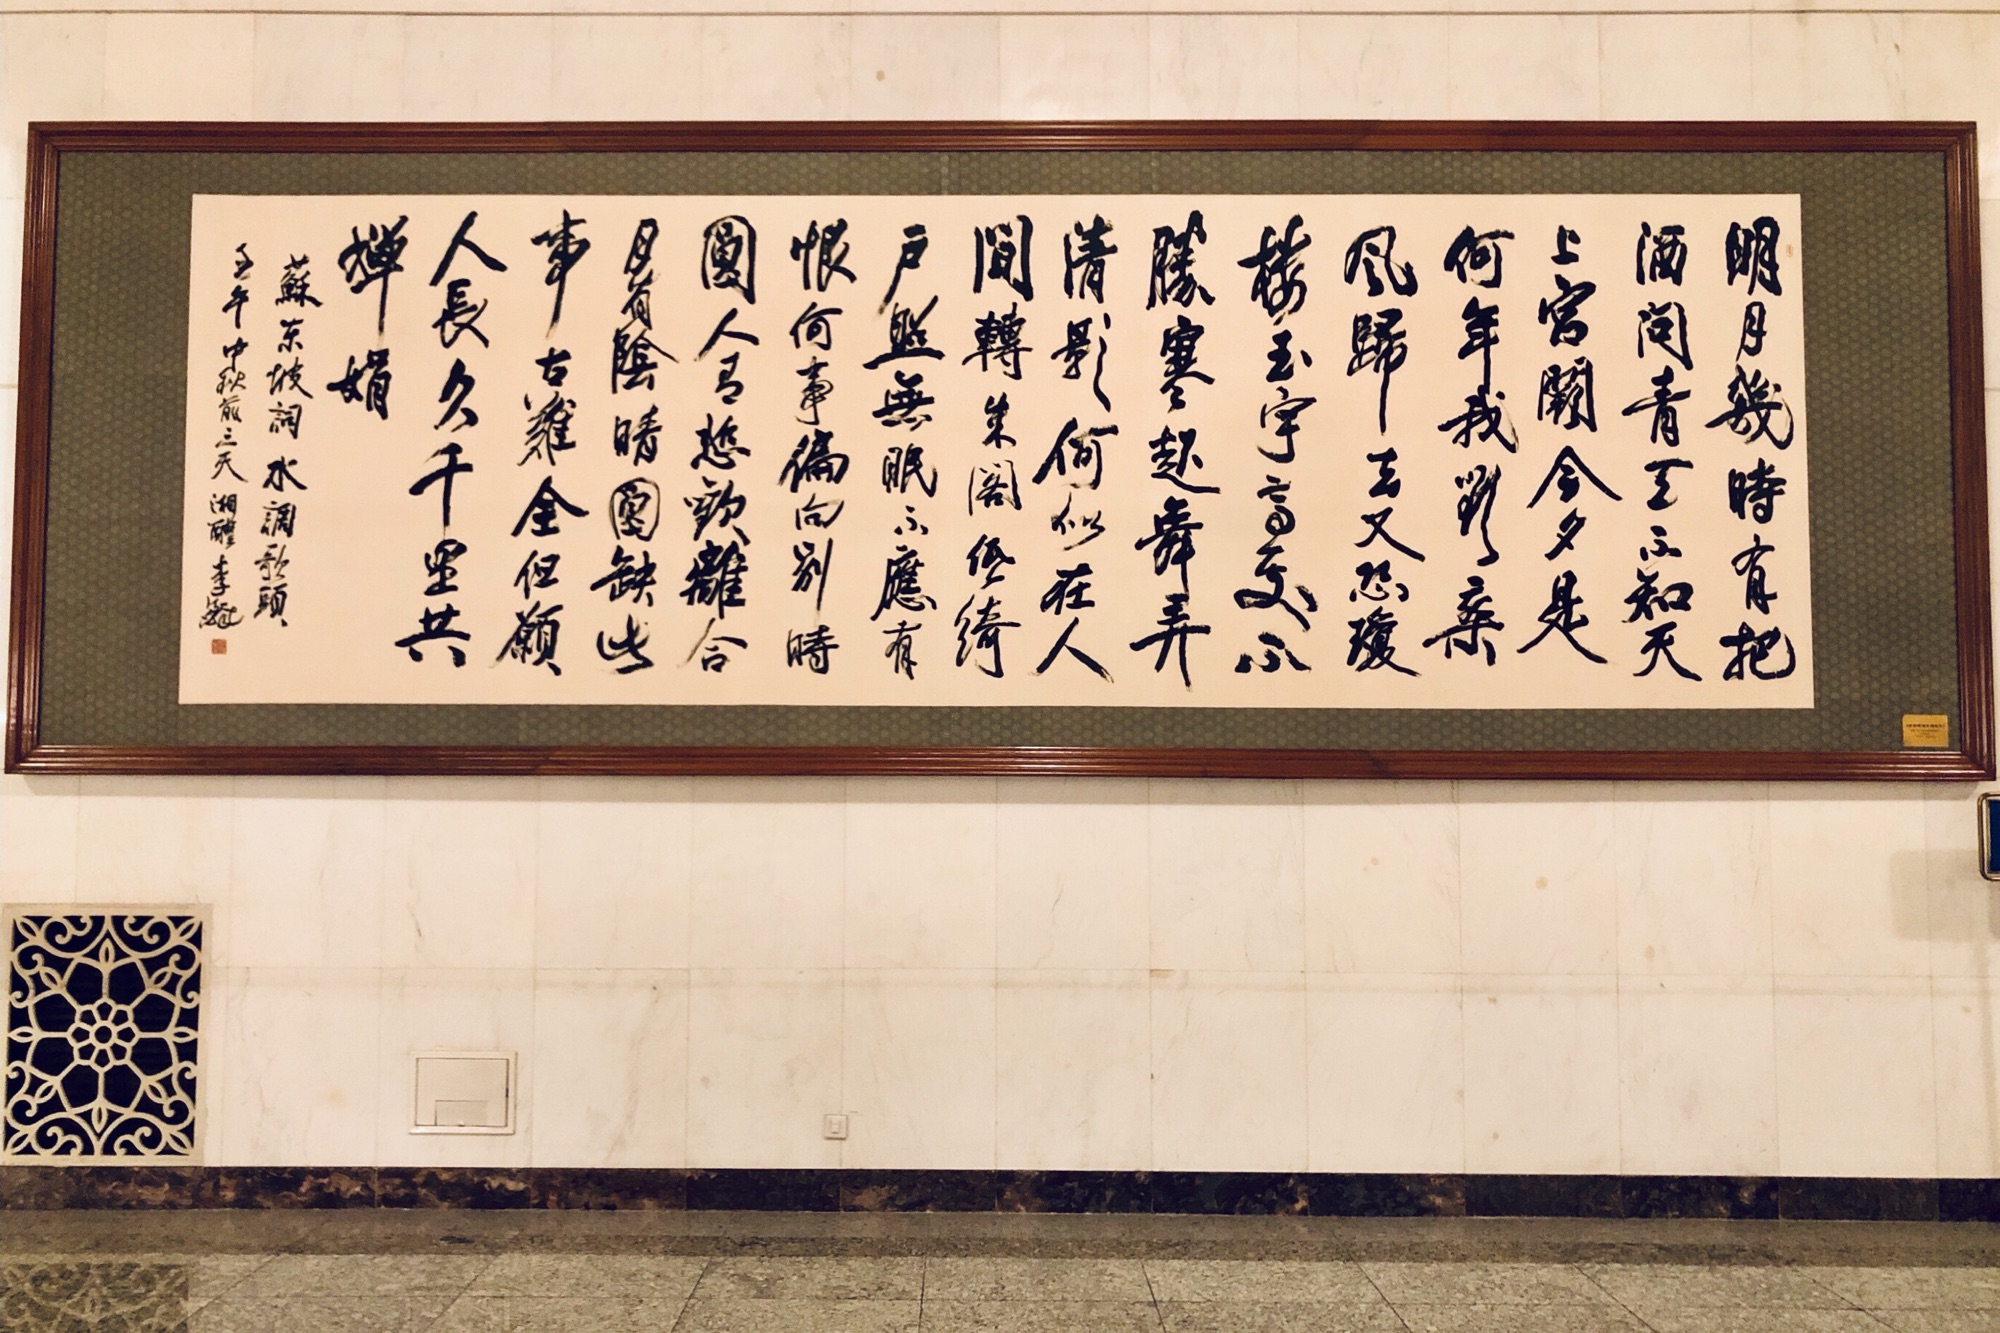 明月幾時有把
酒問青天不知天
上宮闕今夕是
何年我欲乘
風歸去又恐瓊
樓玉宇高處不
勝寒起舞弄
清影何似在人
間轉朱閣低綺
戶照無眠不應有
恨何事偏向別時
圓人有悲歡離合
月有陰晴圓缺此
事古難全但願
人長久千里共
嬋娟
蘇東坡詞水調歌頭
壬午中秋前三天湘醴李鐸